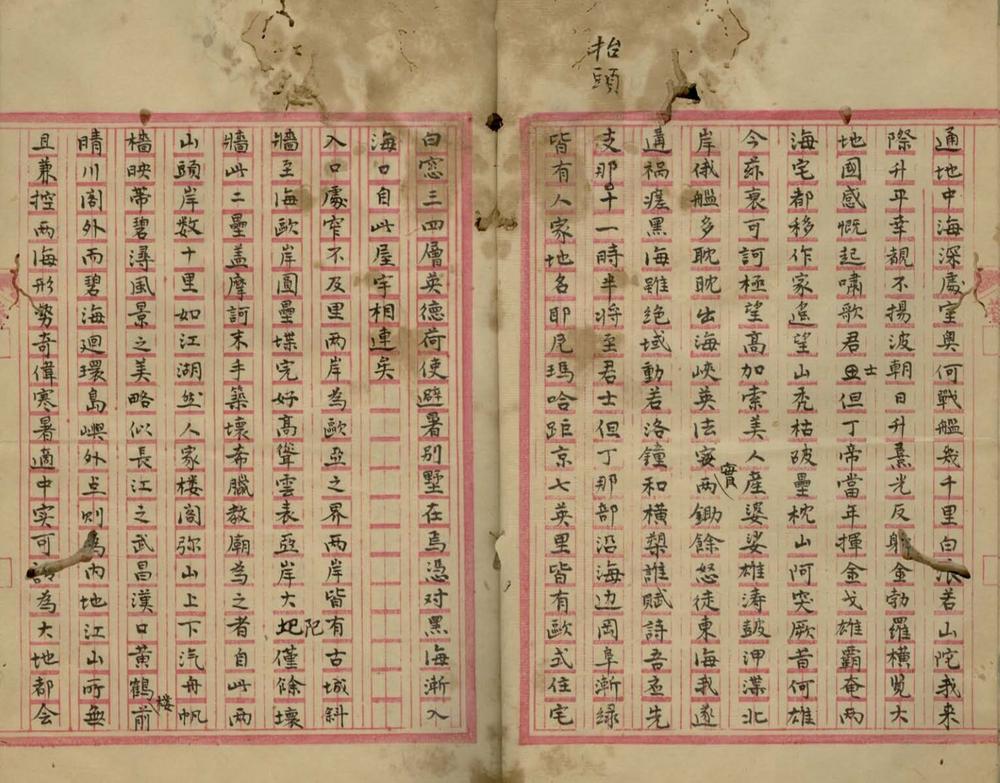 抬頭
通地中海深處室奧何戰艦幾千里白浪若山陀我来
際升平幸覩不揚波朝日升熹光反射金勃羅横覽大
地國感慨起嘯歌君士但丁帝當年揮金戈雄霸奄两
海宅都移作家遙望山禿枯破壘枕山阿突厥昔何雄
今茲衰可訶極望高加索美人產婆娑雄濤鼓泙渫北
岸俄艦多耽耽出海峽英法實两鋤餘怒徒東海我遂
遘禍瘥黑海雖绝域動若洛鐘和横槊誰賦詩吾盃先
支那十一時半将至君士但丁那部沿海边岡阜漸緑
皆有人家地名耶尼瑪哈距京七英里皆有歐式住宅
白窓三四層英德荷使避暑别墅在焉憑对黑海漸入
海口自此屋宇相連矣
入口處窄不及里两岸為歐亞之界两岸皆有古城斜
牆至海歐岸圓壘堞完好高聳雲表亞岸大圮僅餘壞
牆此二壘盖摩訶末手築壞希臘教廟為之者自此两
山頭岸数十里如江湖然人家楼閣弥山上下汽舟帆
檣映帶碧潯風景之美略似長江之武昌漢口黄鶴楼前
晴川閣外而碧海迴環島嶼外圭則為内地江山所無
且兼控两海形勢奇偉寒暑適中实可謂為大地都会